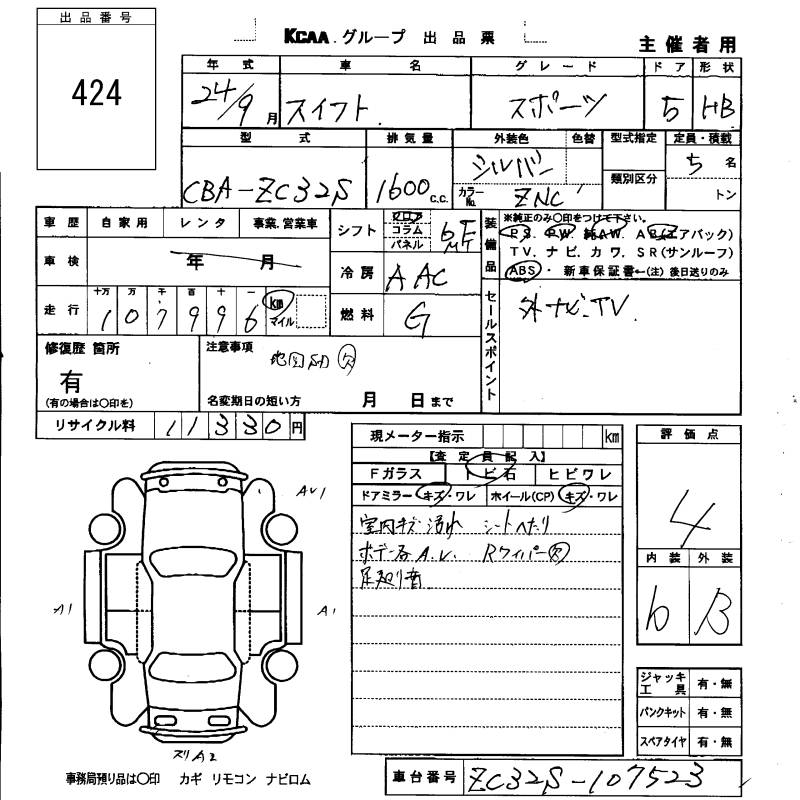 出品番号
424
KCAA.グループ 出品票
主催者用
年式 車名 グレード ドア 形状
24/9月 スイフト スポーツ 5 HB
型式 排気量 外装色 色替 型式指定 定員・積載
CBA-ZC32S 1600c.c. シルバー 5名
カラーNo. ZNC 類別区分 トン
車歴 自家用 レンタ 事業.営業車
シフト フロア コラム パネル 6F MT
装備品 ※純正のみ〇印をつけて下さい。
P.S. P.W. 純A.W. A.B(エアバック)
T.V. ナビ. カワ. S.R(サンルーフ)
ABS ・ 新車保証書←(注) 後日送りのみ
車検 年 月
冷房 AAC
走行 十万 万 千 百 十 一 km マイル
107996
燃料 G
セールスポイント
外ナビ.TV.
修復歴 箇所
有
(有の場合は〇印を)
注意事項
地図SD 欠
名変期日の短い方 月 日まで
リサイクル料 11330円
現メーター指示 km
【査定員記入】
Fガラス トビ石 ヒビワレ
ドアミラー キズ・ワレ ホイール(CP) キズ・ワレ
室内キズ・汚れ シートヘたり
ボデー各A.U. Rワイパー欠
足廻り音
評価点
4
内装 外装
b B
AU1
A1
A1
スリA2
ジャッキ工具 有・無
パンクキット 有・無
スペアタイヤ 有・無
事務局預り品は〇印 カギ リモコン ナビロム
車台番号 ZC32S-107523